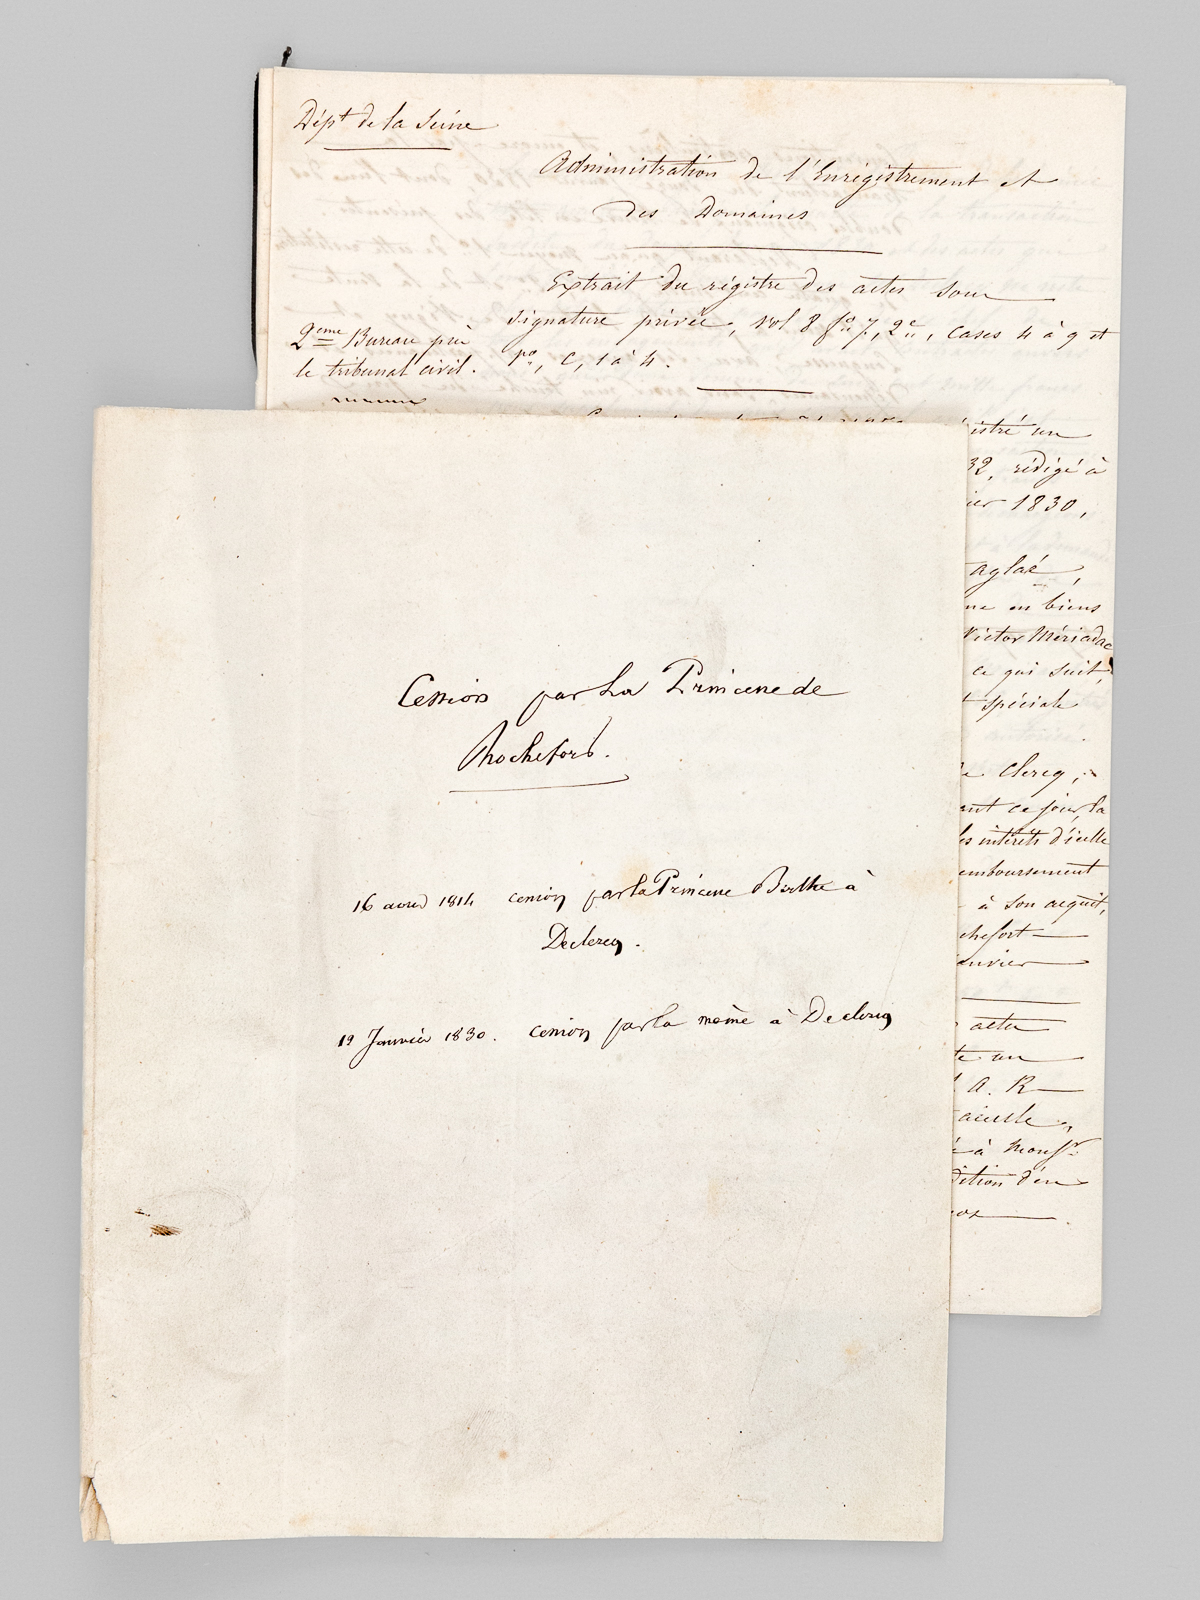 Dépt de la Seine
Administration de l'Enrégistrement et
des Domaines
Extrait du régistre des actes sous
signature privée, vol 8 fo 7, 2e, cases 4 à 9 et
ro, c, 1 à 4.
2eme Bureau près
le tribunal civil.
istré un
32, rédigé à
ier 1830,
aglaé,
ne en biens
Victor Mériadec
ce qui suit,
t spéciale
de Clercq,
ant ce jour, la
les intérêts d'icelle
emboursement
à son acquit,
chefort
anvier
actes
te un
A. R
à Monsr
dition d'en
Cession par La Princesse de
Rochefort.
16 avril 1814 cession par la Princesse Berthe à
Declercq.
19 Janvier 1830. cession par la même à Declercq